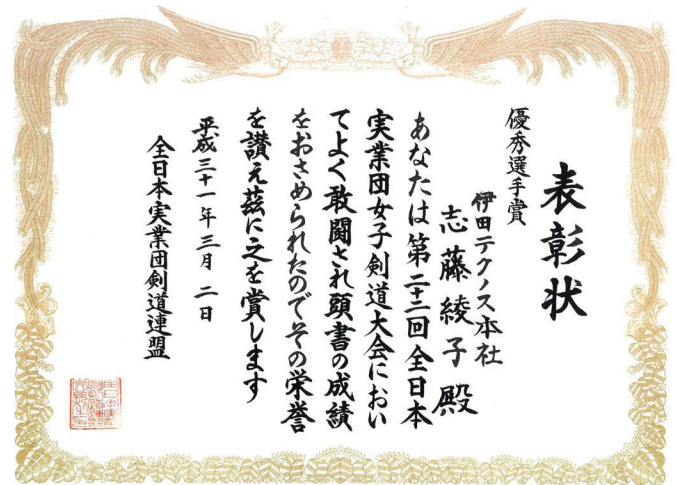 表彰状
優秀選手賞
伊田テクノス本社
志藤綾子殿
あなたは第二十二回全日本
実業団女子剣道大会におい
てよく敢闘され頭書の成績
をおさめられたのでその栄誉
を讃え茲に之を賞します
平成三十一年三月二日
全日本実業団剣道連盟